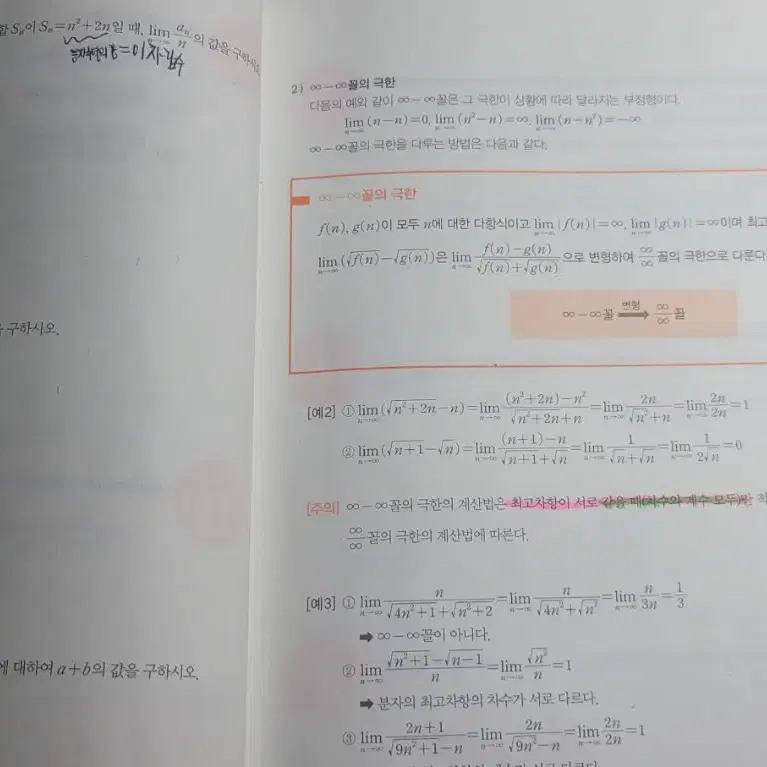 합 Sₙ이 Sₙ=n²+2n일 때, lim(n→∞) aₙ/n 의 값을 구하시오.
구하시오.
에 대하여 a+b의 값을 구하시오.
2) ∞-∞꼴의 극한
다음의 예와 같이 ∞-∞꼴은 그 극한이 상황에 따라 달라지는 부정형이다.
lim(n→∞) (n-n)=0, lim(n→∞) (n²-n)=∞, lim(n→∞) (n-n²)=-∞
∞-∞꼴의 극한을 다루는 방법은 다음과 같다.
∞-∞꼴의 극한
f(n), g(n)이 모두 n에 대한 다항식이고 lim(n→∞) |f(n)|=∞, lim(n→∞) |g(n)|=∞이며 최고
lim(n→∞) (√f(n)-√g(n))은 lim(n→∞) (f(n)-g(n))/(√f(n)+√g(n)) 으로 변형하여 ∞/∞ 꼴의 극한으로 다룬다.
∞-∞꼴 변형 → ∞/∞ 꼴
[예2] ① lim(n→∞) (√(n²+2n)-n)=lim(n→∞) ((n²+2n)-n²)/(√(n²+2n)+n)=lim(n→∞) 2n/(√n²+n)=lim(n→∞) 2n/2n=1
② lim(n→∞) (√(n+1)-√n)=lim(n→∞) ((n+1)-n)/(√(n+1)+√n)=lim(n→∞) 1/(√n+√n)=lim(n→∞) 1/(2√n)=0
[주의] ∞-∞꼴의 극한의 계산법은 최고차항이 서로 같을 때(차수와 계수 모두)만
∞/∞ 꼴의 극한의 계산법에 따른다.
[예3] ① lim(n→∞) n/(√(4n²+1)+√(n²+2))=lim(n→∞) n/(√(4n²)+√n²)=lim(n→∞) n/3n=1/3
➡ ∞-∞꼴이 아니다.
② lim(n→∞) (√(n²+1)-√(n-1))/n=lim(n→∞) √n²/n=1
➡ 분자의 최고차항의 차수가 서로 다르다.
③ lim(n→∞) (2n+1)/(√(9n²+1)-n)=lim(n→∞) 2n/(√(9n²)-n)=lim(n→∞) 2n/2n=1